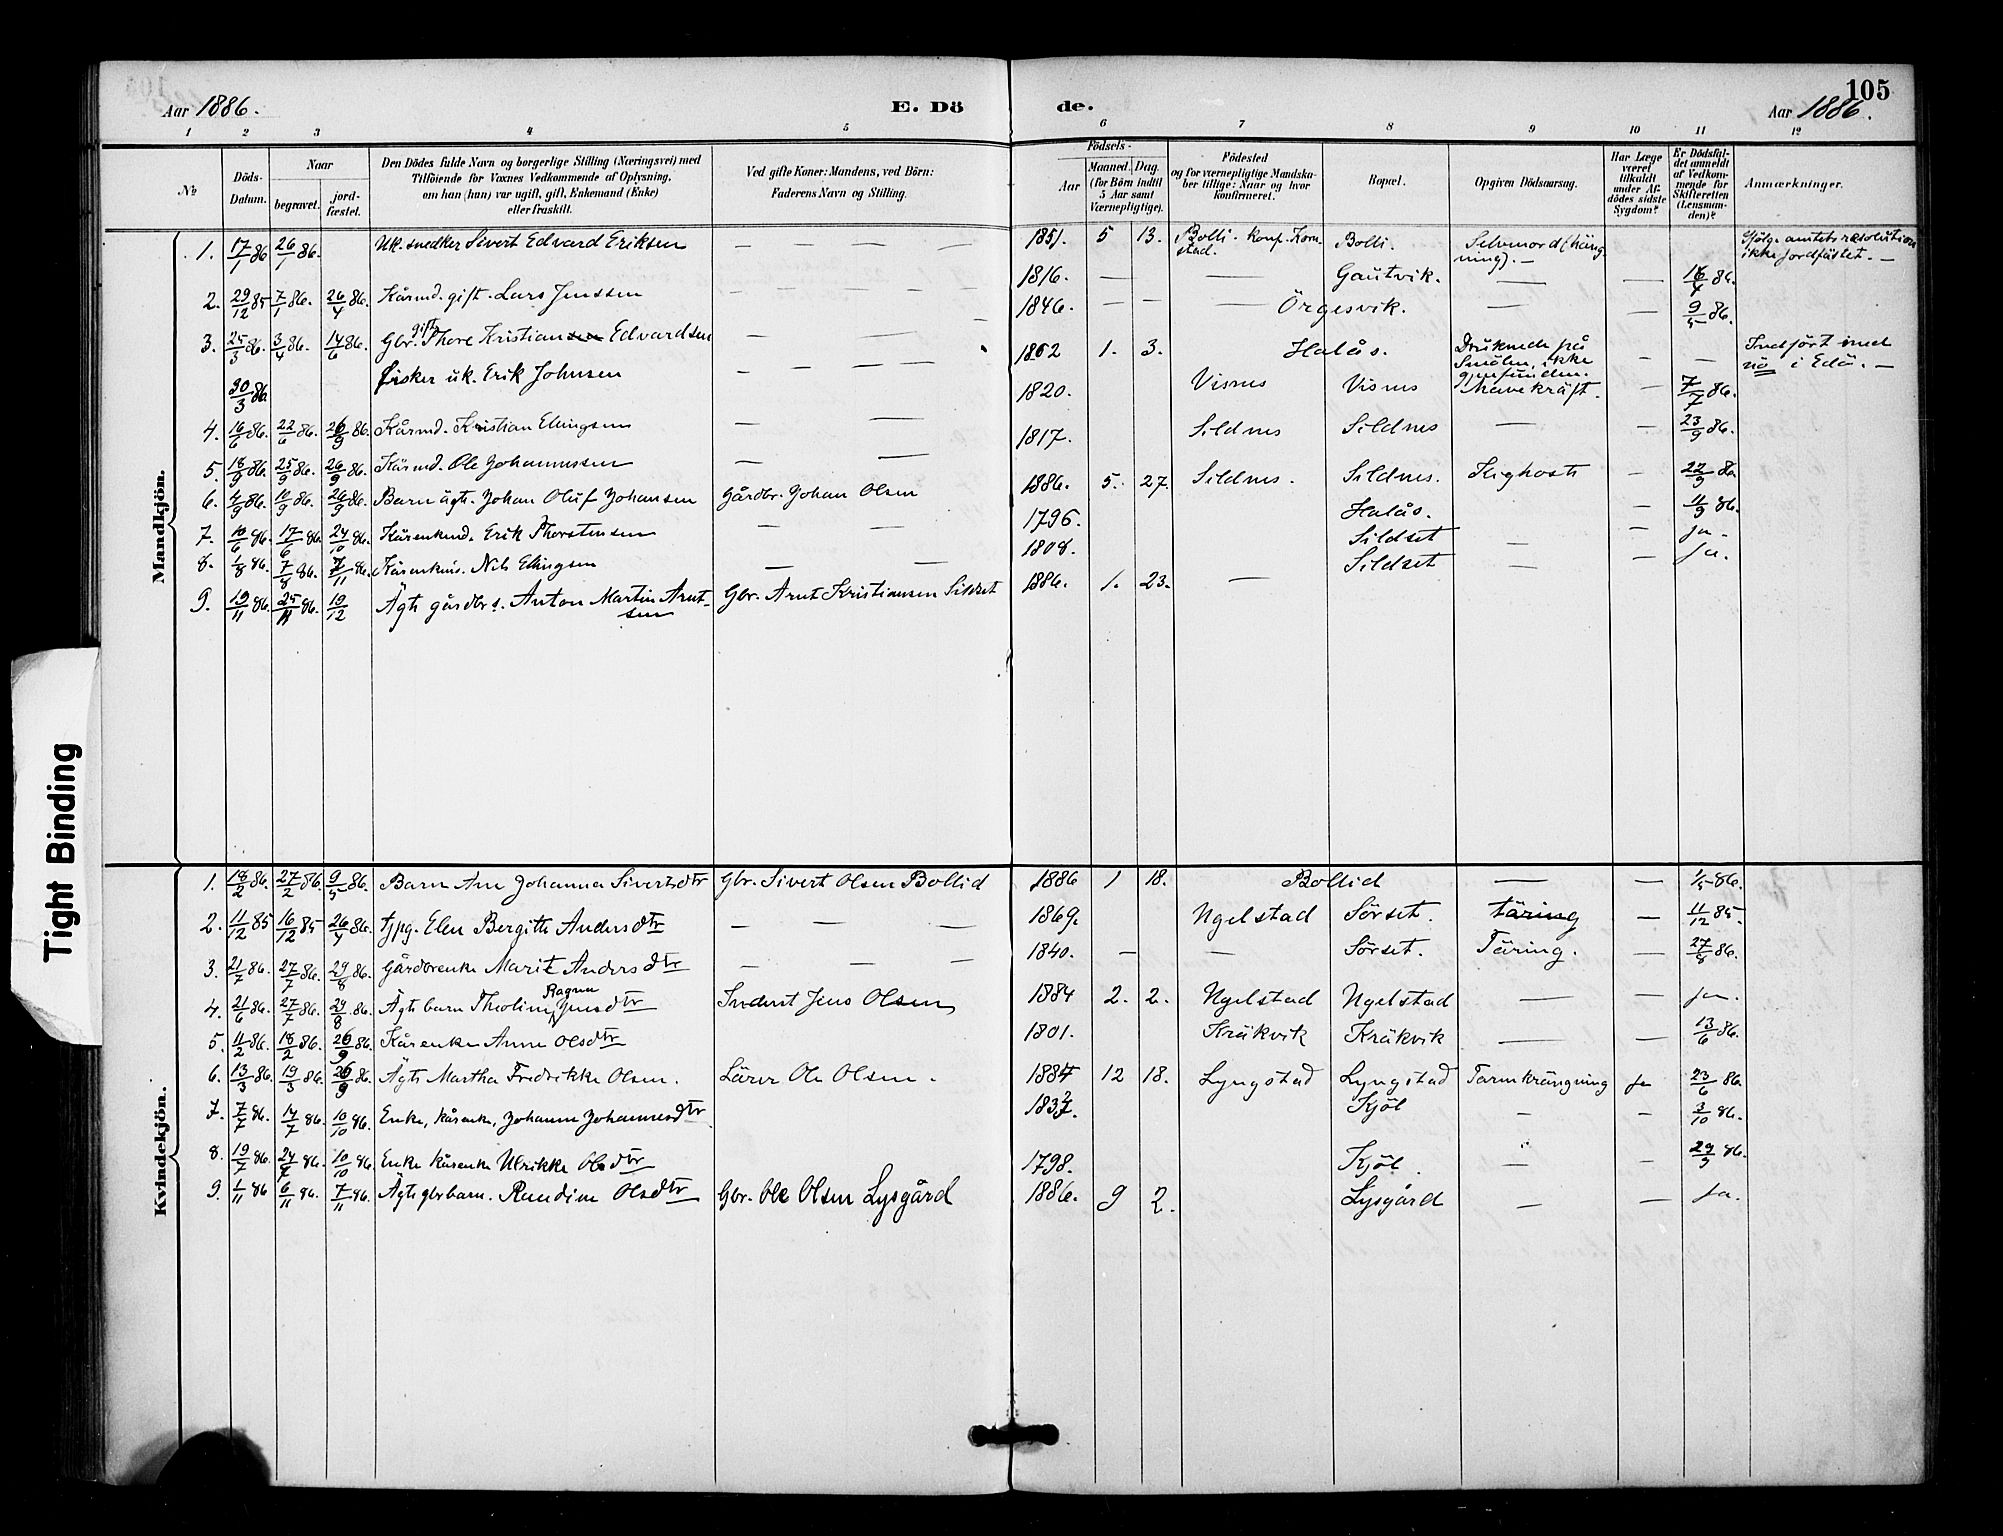 105
Aar 1886.
E. Dö
de.
Aar 1886.
1 2 3 4 5 6 7 8 9 10 11 12
No
Döds-Datum.
Naar
begravet.
jord-fæstet.
Den Dödes fulde Navn og borgerlige Stilling (Næringsvei) med
Tilföiende for Voxnes Vedkommende af Oplysning,
om han (hun) var ugift, gift, Enkemand (Enke)
eller fraskilt.
Ved gifte Koner: Mandens, ved Börn:
Faderens Navn og Stilling.
Födsels-
Aar
Maaned. Dag.
(for Börn indtil
5 Aar samt
Værnepligtige).
Födested
og for værnepligtige Mandska-
ber tillige: Naar og hvor
konfirmeret.
Bopæl.
Opgiven Dödsaarsag.
Har Læge
været
tilkaldt
under Af-
dödes sidste
Sygdom?
Er Dödsfal-
det anmeldt
af Vedkom-
mende for
Skifteretten
(Lensman-
den)?
Anmærkninger.
Mandkjön.
1. 17/1 86 26/1 86. Uk. snedker Sivert Edvard Eriksen — — — — 1851. 5 13. Bolli. konf. Korn-
stad. Bolli. Selvmord (häng-
ning). — Ifölge amtets resolution
ikke jordfästet. —
2. 29/12 85 7/1 86. 26/4 86. Kårmd. gift. Lars Jenssen — — — — 1816. — — Gautvik. — — 16/4 86.
3. 25/3 86. 3/4 86. 14/6 86. Gbr. gift Thore Kristiansen Edvardsen — — 1846. — — Örgesvik. — — 9/5 86.
30/3 86 Fisker uk. Erik Johnsen — — 1862 1. 3. Halås. Druknede på
Smölen, ikke
gjenfunden. — — Indfört med
no i Edö. —
4. 16/6 86. 22/6 86. 26/9 86. Kårmd. Kristian Ellingsen — — 1820. Visnes Visnes Mavekräft. — 7/7 86.
5. 18/9 86. 25/9 86. 26/9 86. Kårmd. Ole Johannessen — — 1817. Sildnes Sildnes — — 23/9 86.
6. 4/9 86. 10/9 86. 26/9 86. Barn ägt. Johan Oluf Johansen Gårdbr. Johan Olsen 1886. 5. 27. Sildnes. Sildnes. Kighoste — 22/9 86
7. 10/6 86. 17/6 86. 24/10 86. Kårenkmd. Erik Thorstensen — — 1796. Halås. — 11/9 86.
8. 1/8 86. 7/8 86. 7/11 86. Kårenkms. Nils Ellingsen — — 1808. Sildset — — ja.
9. 19/11 86. 25/11 86. 19/12 Ägte gårdbrs. Anton Martin Arnt-
sen Gbr. Arnt Kristiansen Sildset 1886. 1. 23. — Sildset — — Ja.
Kvindekjön.
1. 18/2 86. 27/2 86. 9/5 86. Barn Ane Johanna Sivertsdtr Gbr. Sivert Olsen Bollid 1886 1 18. Bollid — — 1/5 86.
2. 11/12 85 16/12 85 26/4 86. tjpg. Elen Bergitte Andersdtr — — — 1869. Ngelstad Sörset. täring — 11/12 85.
3. 21/7 86. 27/7 86. 29/8 86. Gårdbrenke Marit Andersdtr — — — 1840. — — Sörset. Täring. 27/8 86.
4. 21/6 86. 27/7 86. 29/8 86. Ägte barn Tholine Ragna Jensdtr Inderst Jens Olsen 1884 2. 2. Ngelstad Ngelstad — — ja.
5. 11/2 86. 18/2 86. 26/9 86. Kårenke Anne Olsdtr 1801. Kråkvik Kråkvik — — 13/6 86.
6. 13/3 86. 19/3 86. 26/9 86. Ägte Martha Fredrikke Olsen. Lärer Ole Olsen. 1884 12 18. Lyngstad Lyngstad Tarmkrängning Ja 23/6 86.
7. 7/7 86. 14/7 86. 10/10 86. Enke, kårenke, Johanne Johannesdtr 1837. Kjöl — — 3/10 86.
8. 19/7 86. 24/7 86. 10/10 86. Enke kårenke Ulrikke Olsdtr 1798. Kjöl. — — 29/9 86.
9. 1/11 86 6/11 86. 7/11 86. Ägte gbrbarn. Randine Olsdtr Gbr. Ole Olsen Lysgård 1886. 9 2. Lysgård — — Ja.
Tight Binding